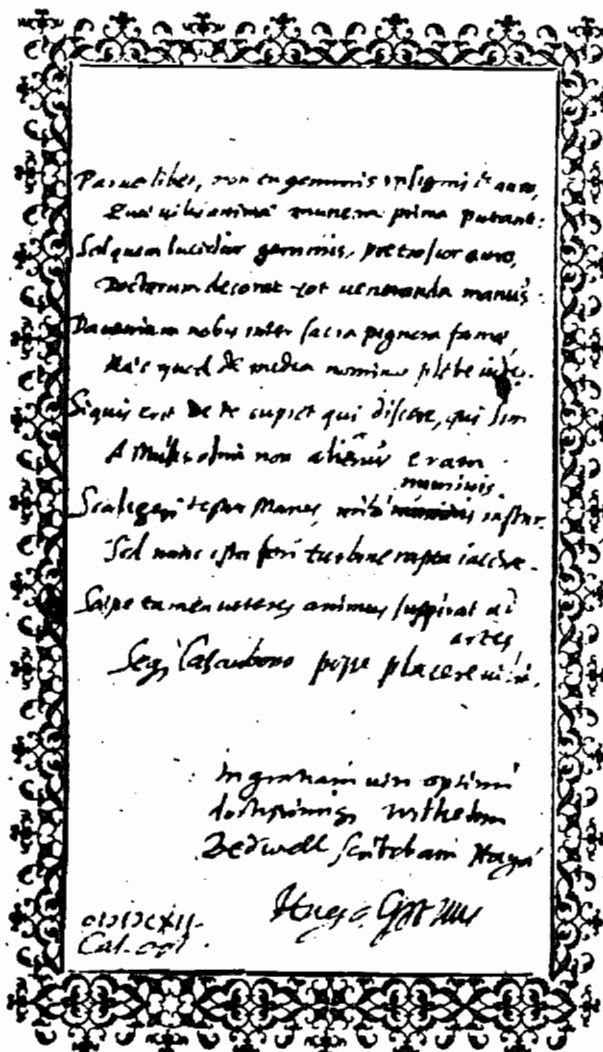 Parue liber, non tu gemmis insignis & auro,
Quae vilis anima munera prima putant:
Sed quem lucidior gemmis, pretiosior auro,
Doctorum decorat tot veneranda manus:
Da veniam nobis inter sacra pignera famae,
Haec quod de media nomina plebe
Siquis erit de te cupiet qui discere, qui sim
A Musis olim non alienus eram
numinis
Scaligeri testor Manes, mihi instar
Sed nunc ista fori turbine rapta iacent.
Saepe tamen veteres animus suspirat ad
artes
Seq Casaubono posse placere
In gratiam viri optimi
doctissimiq Wilhelmi
Bedwell scribebam Hagae
Hugo Grotius
Cal.